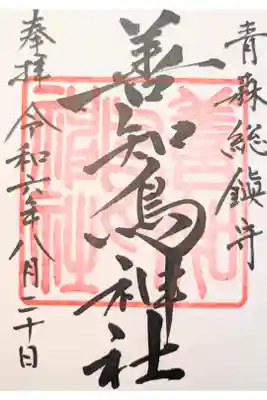 青森総鎮守
善知鳥神社
奉拝 令和六年八月二十日
善知
鳥神
社